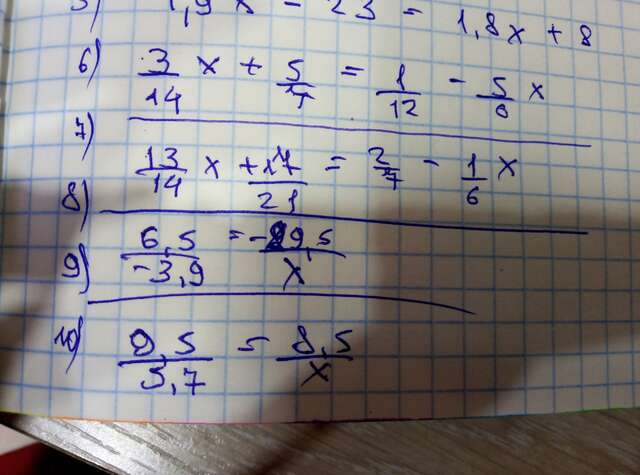 5) 1,9x - 23 = 1,8x + 8
6) 3/14 x + 5/7 = 1/12 - 5/6 x
7)
13/14 x + 17/21 = 2/7 - 1/6 x
8)
6,5/-3,9 = -9,5/x
9)
10) 9,5/5,7 = 8,5/x